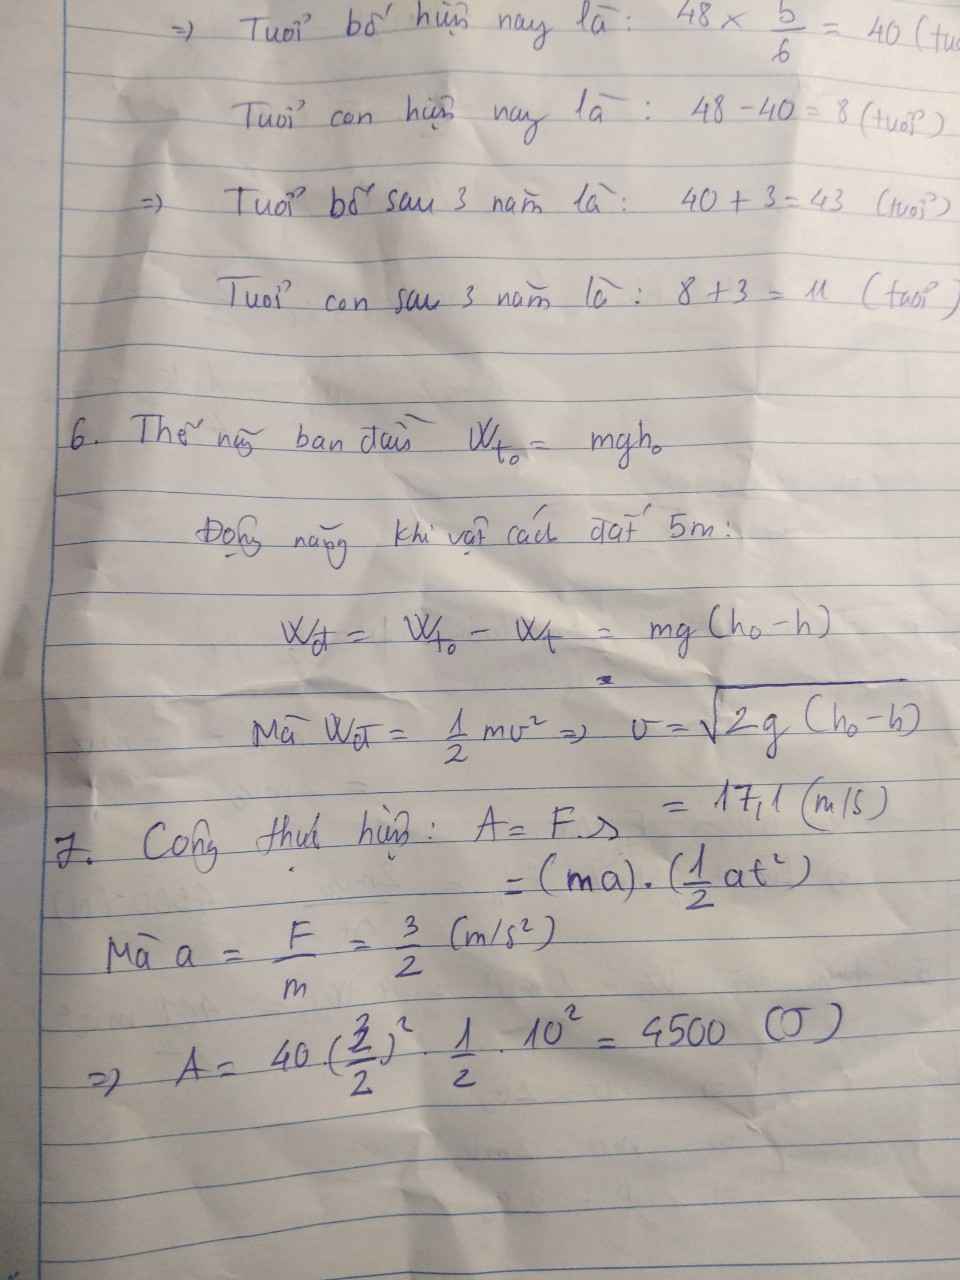 => Tuổi bố hiện nay là: 48 × 5/6 = 40 (tuổ
Tuổi con hiện nay là: 48 - 40 = 8 (tuổi)
=> Tuổi bố sau 3 năm là: 40 + 3 = 43 (tuổi)
Tuổi con sau 3 năm là: 8 + 3 = 11 (tuổi)
6. Thế năng ban đầu Wt₀ = mgh₀
Động năng khi vật cách đất 5m:
Wđ = Wt₀ - Wt = mg(h₀-h)
Mà Wđ = 1/2 mv² => v = √2g(h₀-h)
= 17,1 (m/s)
7. Công thực hiện: A = F.s
= (ma).(1/2 at²)
Mà a = F/m = 3/2 (m/s²)
=> A = 40 (3/2)² . 1/2 . 10² = 4500 (J)